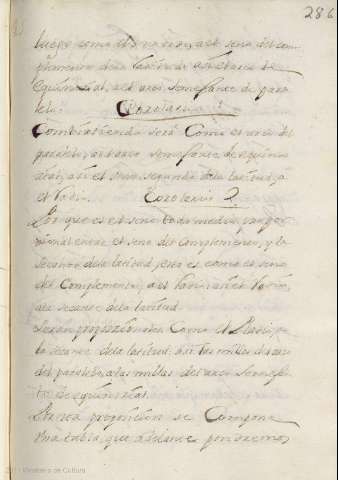 286
luego como el radio, al seno del com-
plemento de la latitud, así el arco de
equinoctial, al arco semejante de para-
lelo.
Corolario 1
Combirtiendo será Como el arco del
paralelo, al arco semejante de equinoc-
cial, así el seno segundo de la latitud, a
el Radio. Corolario 2
Por que es el seno todo medio propor-
cional entre el seno del Complemento, y la
secante de la latitud, esto es, como el seno
del Complemento, a el Radio, así el Radio,
a la secante de la latitud.
Seran proporcionales Como el Radio, a
la secante de la latitud, así las millas del arco
del paralelo, a las millas del arco semejan-
te de equinoccial.
De esta proposicion se Compone
Una tabla, que adelante pondremos
Ministerio de Cultura